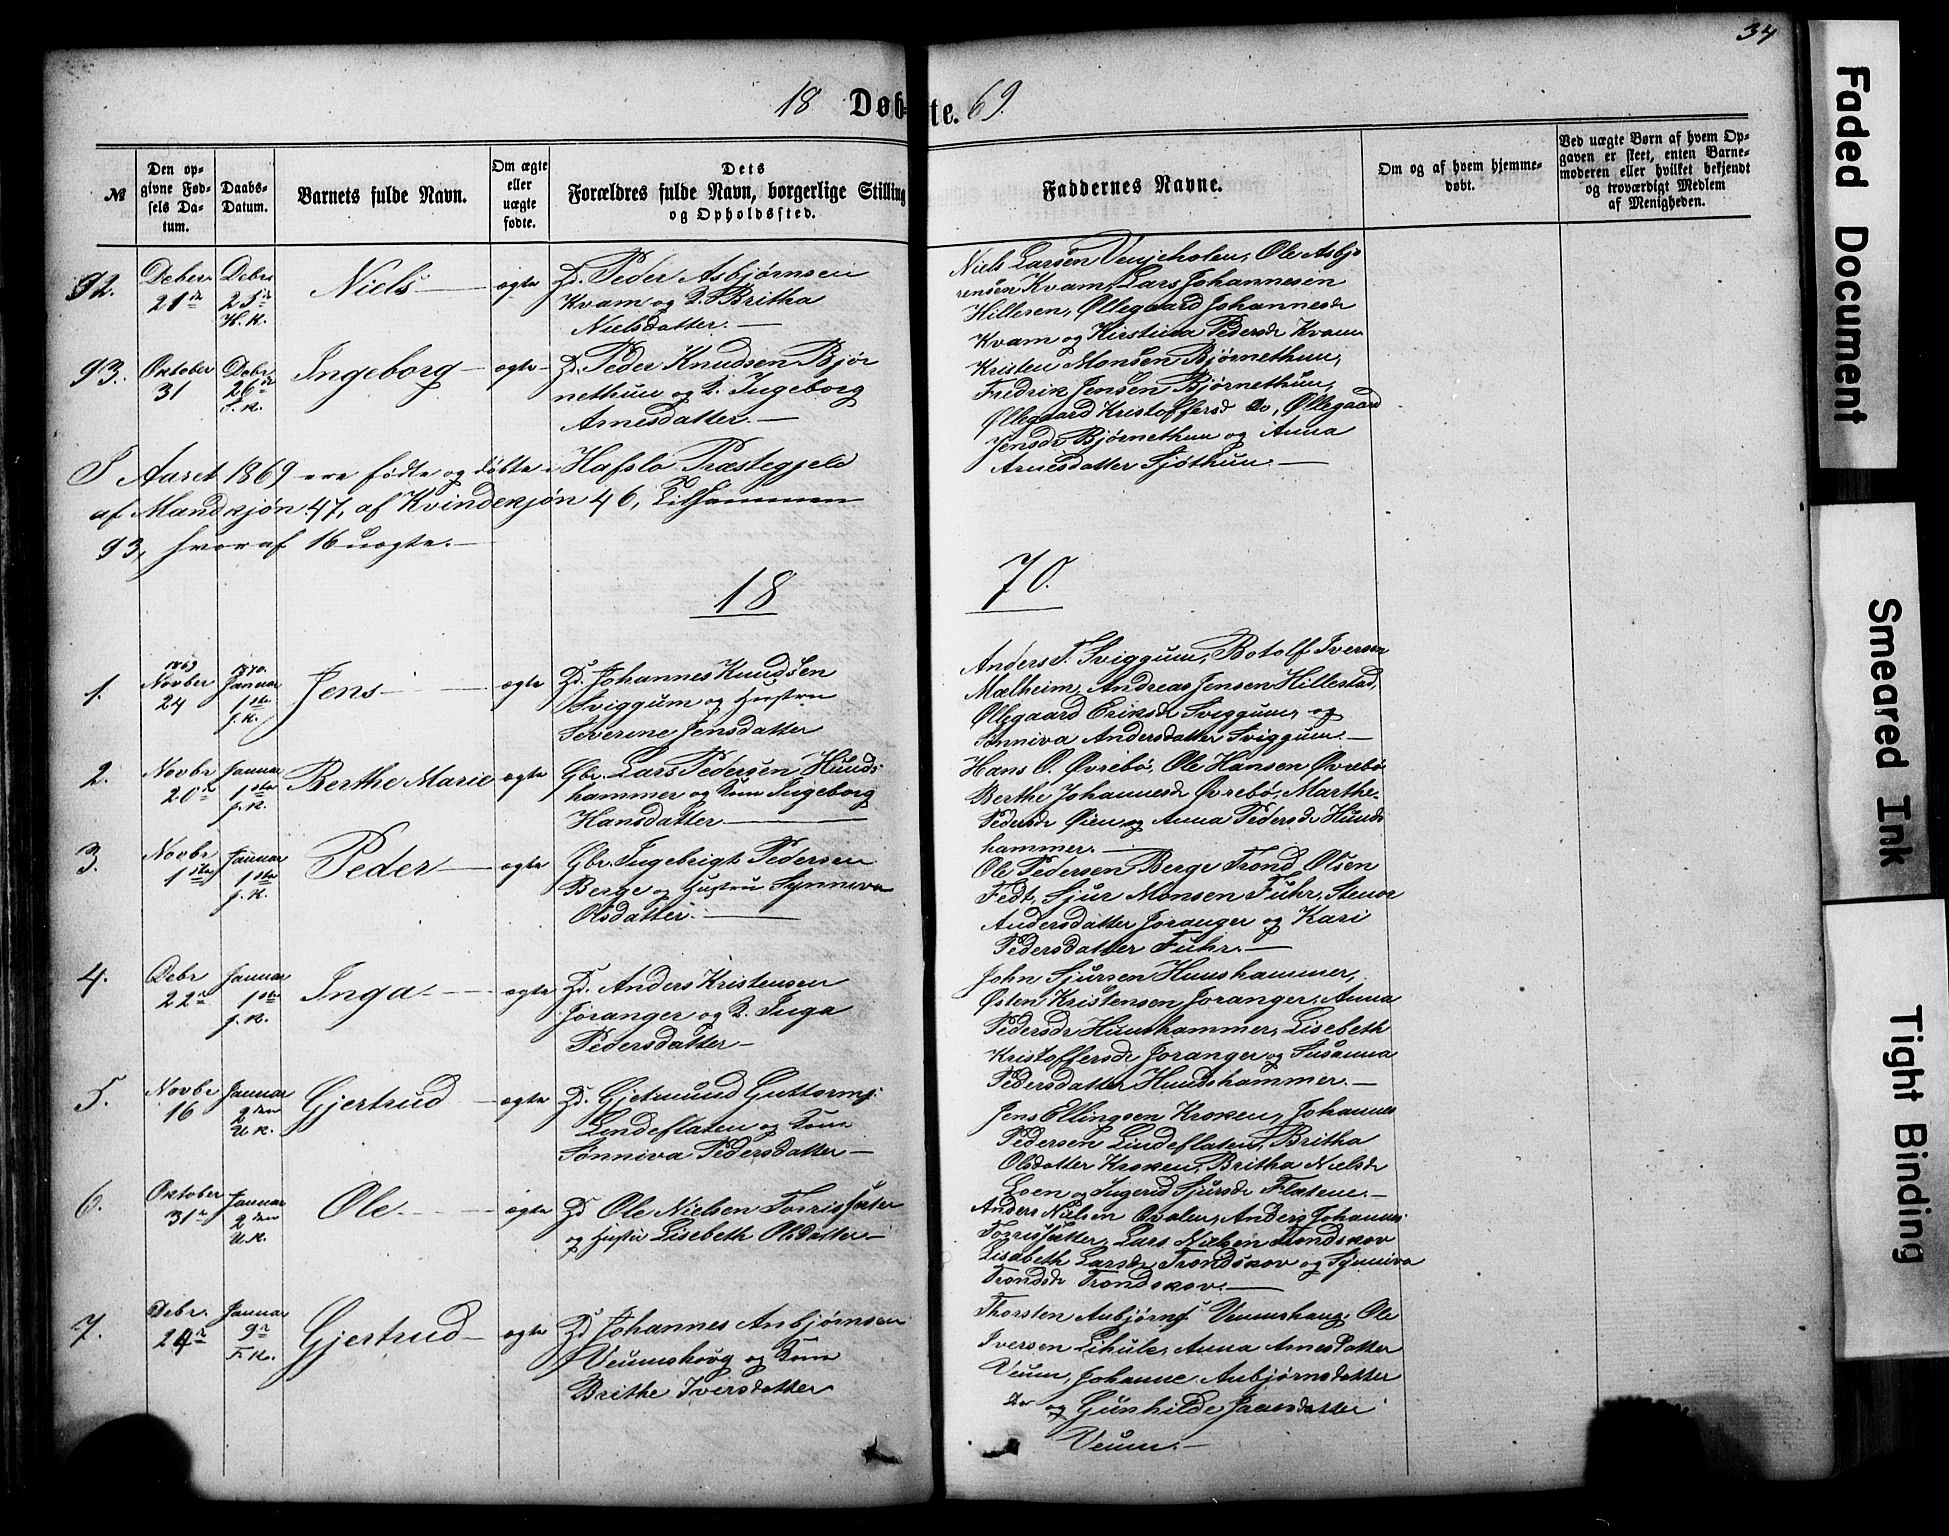 34
18 Døb-te. 69.
№
Den op-
givne Fød-
sels Da-
tum.
Daabs-
Datum.
Barnets fulde Navn.
Om ægte
eller
uægte
fødte.
Dets
Forældres fulde Navn, borgerlige Stilling
og Opholdssted.
Faddernes Navne.
Om og af hvem hjemme-
døbt.
Ved uægte Børn af hvem Op-
gaven er skeet, enten Barne-
moderen eller hvilket bekjendt
og troværdigt Medlem
af Menigheden.
92.
Deber
21de
Debr
25de
H. K.
Niels
ægte
Peder Asbjørnsen
Kvam og K. Britha
Nielsdatter.
Niels Larsen Venjeholen, Ole Asbjø
rensen Kvam, Lars Johannesen
Hillesen, Øllegaard Johannesdr
Kvam og Kirstina Pedersdr Kvam
93.
Oktober
31
Debr
26de
S. K.
Ingeborg
ægte
Peder Knudsen Bjør
nethun og K. Ingeborg
Arnesdatter.
Kristen Monsen Bjørnethun,
Fredrik Jensen Bjørnethun,
Øllegaard Kristoffersd do, Øllegaard
Jensdr Bjørnethun og Anna
Arnesdatter Sjøthun.
I Aaret 1869 ere fødte og døbte i Hafslo Præstegjeld
af Mandkjøn 47, af Kvindekjøn 46, Tilsammen
93, hvoraf 16 uægte.
18 70.
1.
1869
Novber
24
1870.
Januar
1ste
J. K.
Jens
ægte
Johannes Knudsen
Sviggum og Hustru
Severine Jensdatter
Anders T. Sviggum, Botolf Iversen
Mælheim, Andreas Jensen Hillestad,
Øllegaard Eriksdr Sviggum og
Sønniva Andersdatter Sviggum.
2.
Novbr
20de
Januar
1ste
J. K.
Berthe Marie
ægte
Gbr. Lars Pedersen Hunds
hammer og Kone Ingeborg
Hansdatter
Hans O. Øvrebø, Ole Hansen Øvrebø
Berthe Johannesdr Øvrebø, Marthe
Pedersdr Øien og Anna Pedersdr Hunds
hammer.
3.
Novbr
1ste
Januar
1ste
J. K.
Peder
ægte
Gbr. Ingebrigt Pedersen
Berge og Hustru Synneva
Olsdatter.
Ole Pedersen Berge Trond Olsen
Fedt, Sjur Monsen Fuhr, Stenor
Andersdatter Joranger og Kari
Pedersdatter Fuhr.
4.
Debr
22de
Januar
1ste
J. K.
Inga
ægte
Anders Kristensen
Joranger og K. Inga
Pedersdatter
John Sjursen Hunshammer,
Østen Kristensen Joranger, Anna
Pedersdr Hunshammer, Lisebeth
Kristoffersdr Joranger og Susanna
Pedersdatter Hundshammer.
5.
Novbr
16
Januar
2den
U. K.
Gjertrud
ægte
Gjetmund Guttorms.
Lindeflaten og Kone
Sønniva Pedersdatter
Jens Ellingsen Kroken, Johannes
Pedersen Lindeflaten, Britha
Olsdatter Kroken, Britha Nielsdr
Loen og Ingerid Sjursdr Flatene.
6.
Oktober
31te
Januar
2den
U. K.
Ole
ægte
Ole Nielsen Torrissæter
og Hustru Lisebeth Olsdatter
Anders Nielsen Ovalen, Anders Johannes
Torrissætter, Lars Nielsen Trondskov
Lisabeth Larsdr Trondskov og Synniva
Trondsdr Trondskov.
7.
Debr.
24de
Januar
9de
F. K.
Gjertrud
ægte
Johannes Anbjørnsen
Veumshoug og Kone
Brithe Iversdatter
Thorsten Anbjørns. Veumshaug, Ole
Iversen Lihule, Anna Arnesdatter
Veum, Johanne Anbjørnsdatter
do og Gunhilde Jansdatter
Veum.
Faded Document
Smeared Ink
Tight Binding